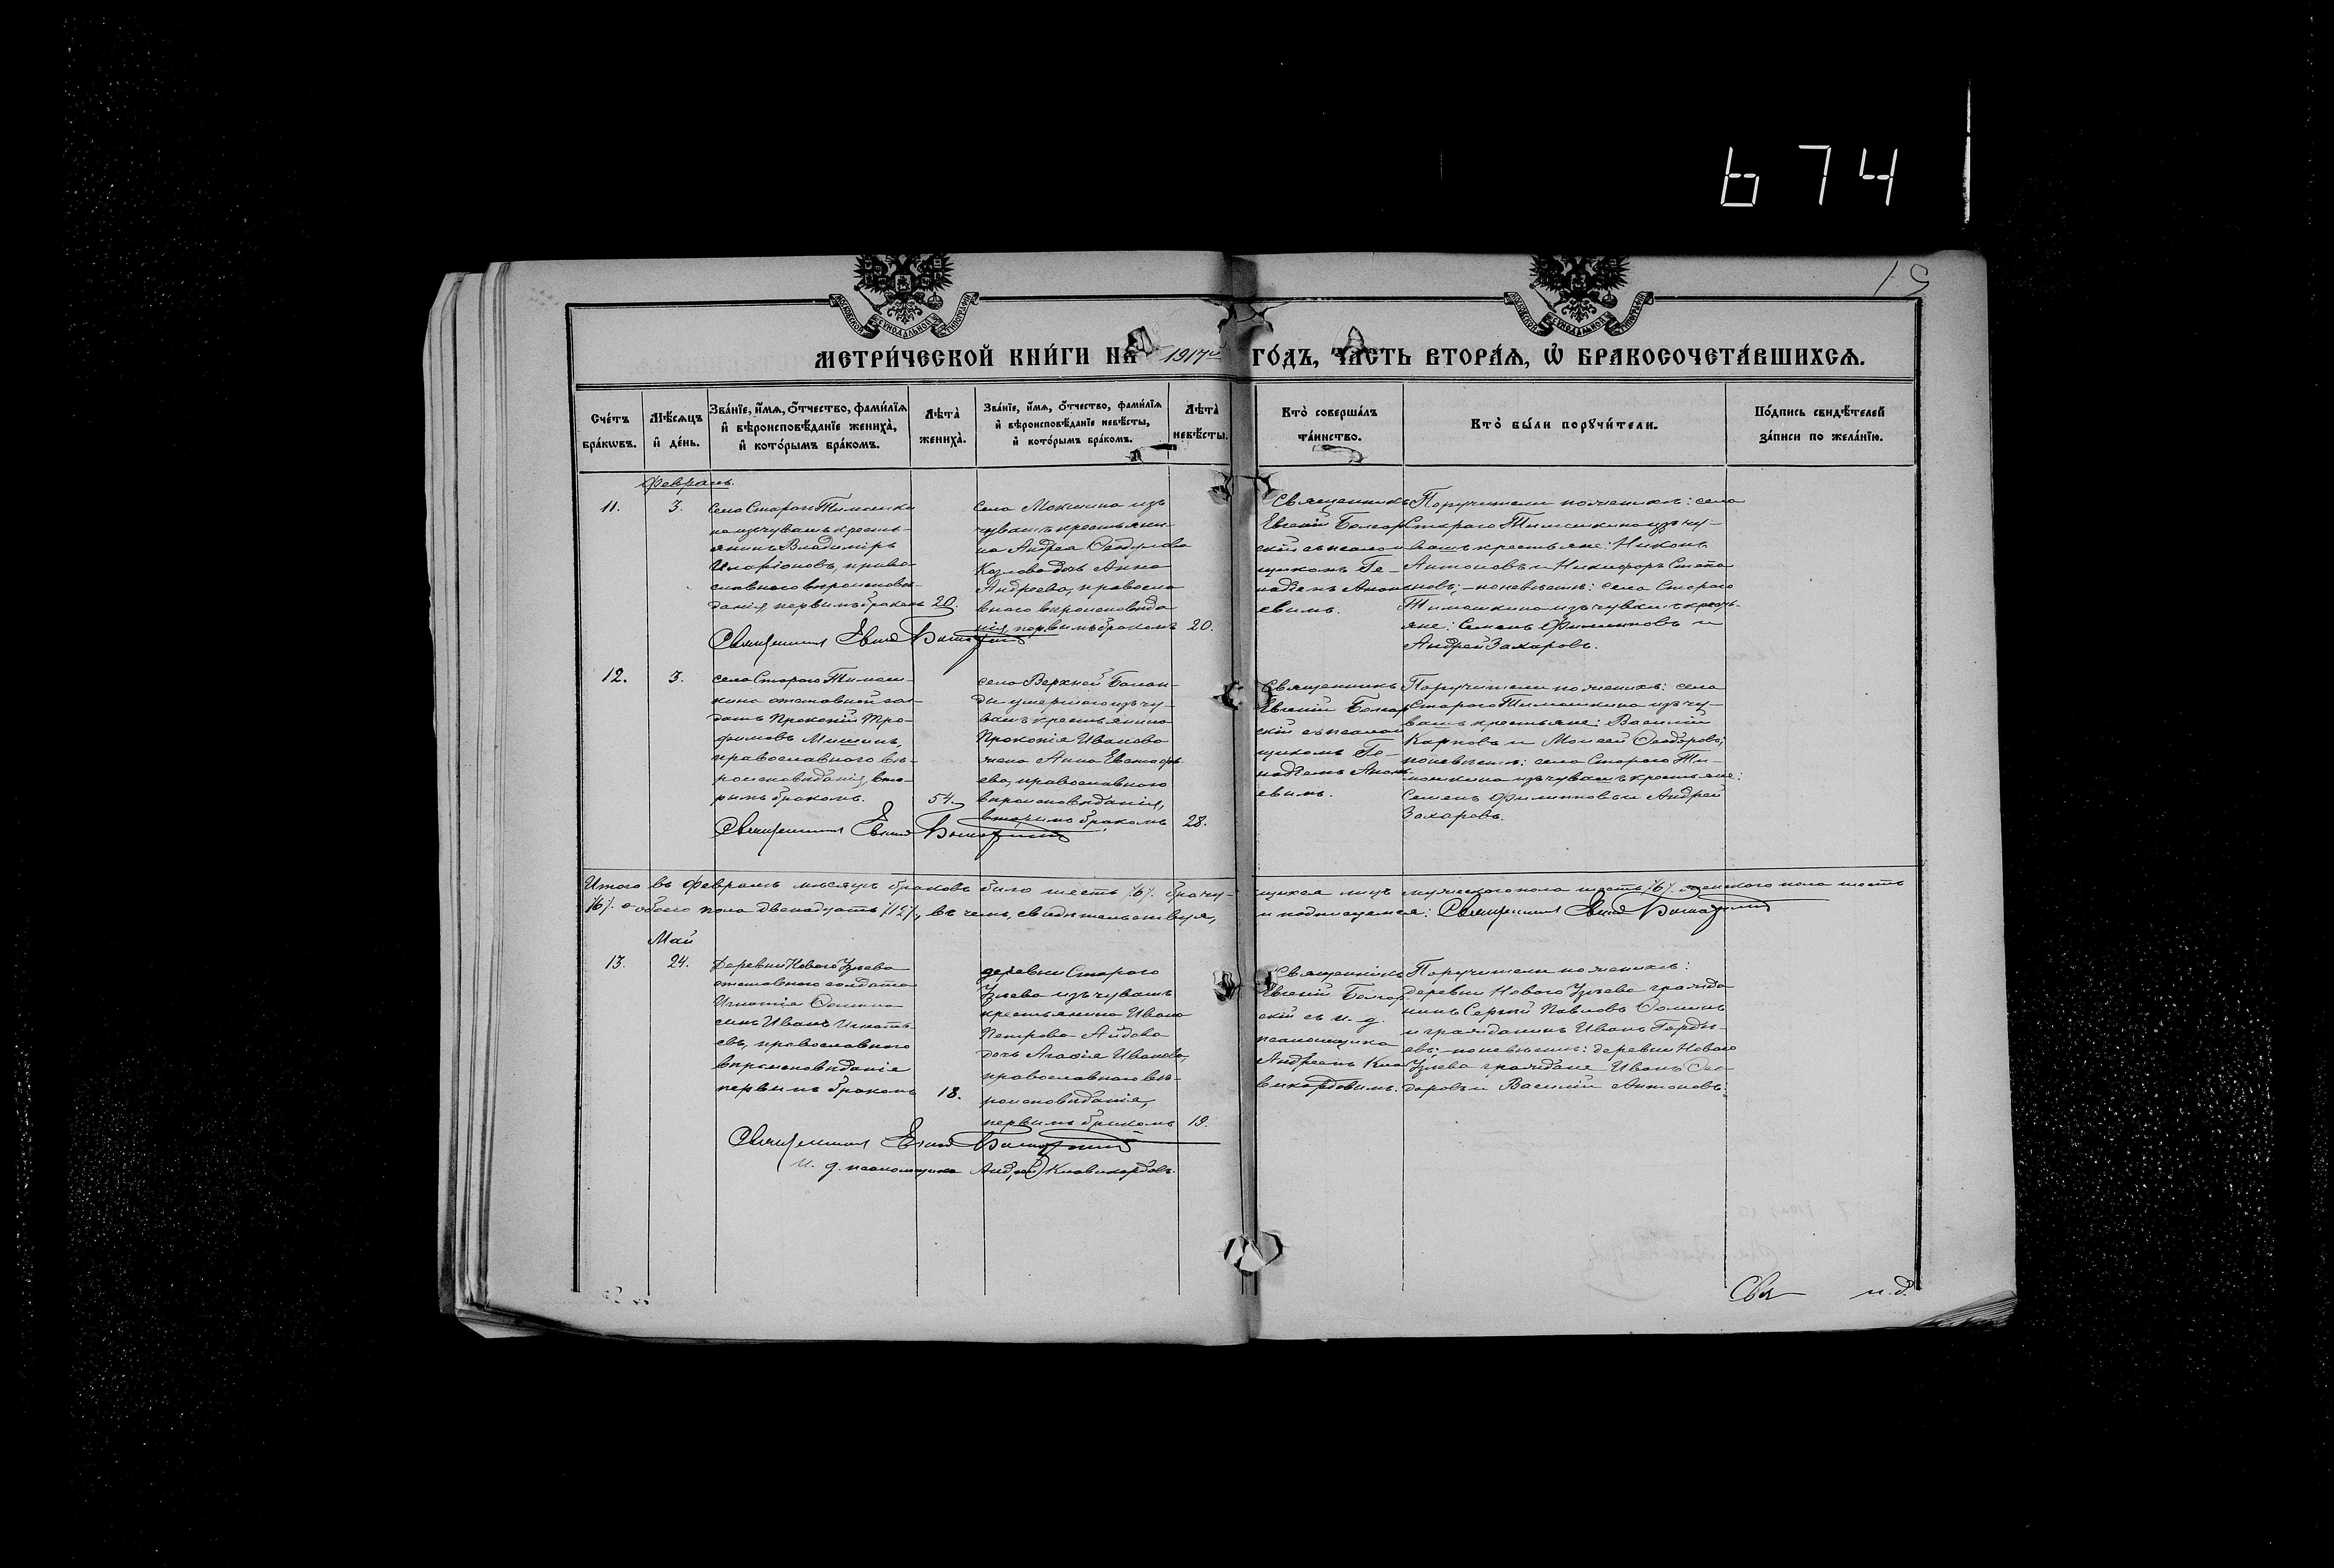 674
19
МОСКОВСКОЙ СѴНОДАЛЬНОЙ ТИПОГРАФІИ
МОСКОВСКОЙ СѴНОДАЛЬНОЙ ТИПОГРАФІИ
МЕТРИ́ЧЕСКОЙ КНИ́ГИ НА 1917й ГО́ДЪ, ЧА́СТЬ ВТОРА́Ѧ, Ѡ҆ БРАКОСОЧЕТА́ВШИХСѦ.
Сче́тъ бра́кѡвъ.
Мѣ́сѧцъ и҆ де́нь.
Зва́нїе, и҆́мѧ, ѻ҆́тчество, фами́лїѧ
и҆ вѣроисповѣ́данїе жениха̀,
и҆ кото́рымъ бра́комъ.
Лѣта̀ жениха̀.
Зва́нїе, и҆́мѧ, ѻ҆́тчество, фами́лїѧ
и҆ вѣроисповѣ́данїе невѣ́сты,
и҆ кото́рымъ бра́комъ.
Лѣта̀ невѣ́сты.
Кто̀ соверша́лъ та́инство.
Кто̀ бы́ли порꙋчи́тели.
По́дпись свидѣ́телей
за́писи по жела́нїю.
Февраль.
11.
3.
села Стараго Тимошки
на изъ чувашъ кресть-
янинъ Владиміръ
Иларіоновъ, право
славнаго вѣроисповѣ-
данія, первымъ бракомъ
20.
села Мокшина изъ
чувашъ крестьяни-
на Андрея Ѳедулова
Козлова дочь Анна
Андреева, правосла
внаго вѣроисповѣда
нія, первымъ бракомъ
20.
Священникъ
Евгеній Болгар
скій съ псалом
щикомъ Ге-
надіемъ Анань
евымъ.
Поручители по женихѣ: села
Стараго Тимошкина изъ чу-
вашъ крестьяне: Никонъ
Антоновъ и Никифоръ Степа
новъ; по невѣстѣ: села Стараго
Тимошкина изъ чувашъ кресть-
яне: Семенъ Филипповъ и
Андрей Захаровъ.
Священникъ Евгеній Болгарскій
12.
3.
села Стараго Тимош-
кина отставной сол-
датъ Прокопій Тро-
фимовъ Мишинъ,
православнаго вѣ-
роисповѣданія, вто-
рымъ бракомъ.
54.
села Верхней Балан-
ды умершаго изъ чу-
вашъ крестьянина
Прокопія Иванова
жена Анна Евстафь
ева, православнаго
вѣроисповѣданія,
вторымъ бракомъ
28.
Священникъ
Евгеній Болгар
скій съ псалом
щикомъ Ге-
надіемъ Анань
евымъ.
Поручители по женихѣ: села
Стараго Тимошкина изъ чу-
вашъ крестьяне: Василій
Карповъ и Моисей Ѳеодоровъ;
по невѣстѣ: села Стараго Ти-
мошкина изъ чувашъ крестьяне:
Семенъ Филипповъ и Андрей
Захаровъ.
Священникъ Евгеній Болгарскій
Итого въ Февралѣ мѣсяцѣ браковъ было шесть /6/. брачу-щихся лицъ мужескаго пола шесть /6/. женскаго пола шесть
/6/. а обоего пола двенадцать /12/, въ чемъ, свидѣтельствуя, и подписуемся: Священникъ Евгеній Болгарскій
Май
13.
24.
Деревни Новаго Узѣева
отставного солдата
Игнатія Ѳомина
сынъ Иванъ Игнать-
евъ, православнаго
вѣроисповѣданія
первымъ бракомъ
18.
деревни Стараго
Узѣева изъ чувашъ
крестьянина Ивана
Петрова Айдова
дочь Агафія Иванова,
православнаго вѣ-
роисповѣданія,
первымъ бракомъ
19.
Священникъ
Евгеній Болгар
скій съ и. д.
псаломщика
Андреемъ Кла
викордовымъ.
Поручители по женихѣ:
деревни Новаго Узѣева гражда
нинъ Сергій Павловъ Ѳоминъ
и гражданинъ Иванъ Горды-
евъ; по невѣстѣ: деревни Новаго
Узѣева граждане Иванъ Ѳео
доровъ и Василій Антоновъ.
Священникъ Евгеній Болгарскій
И. д. псаломщика Андрей Клавикордовъ.
Свя
и. д.